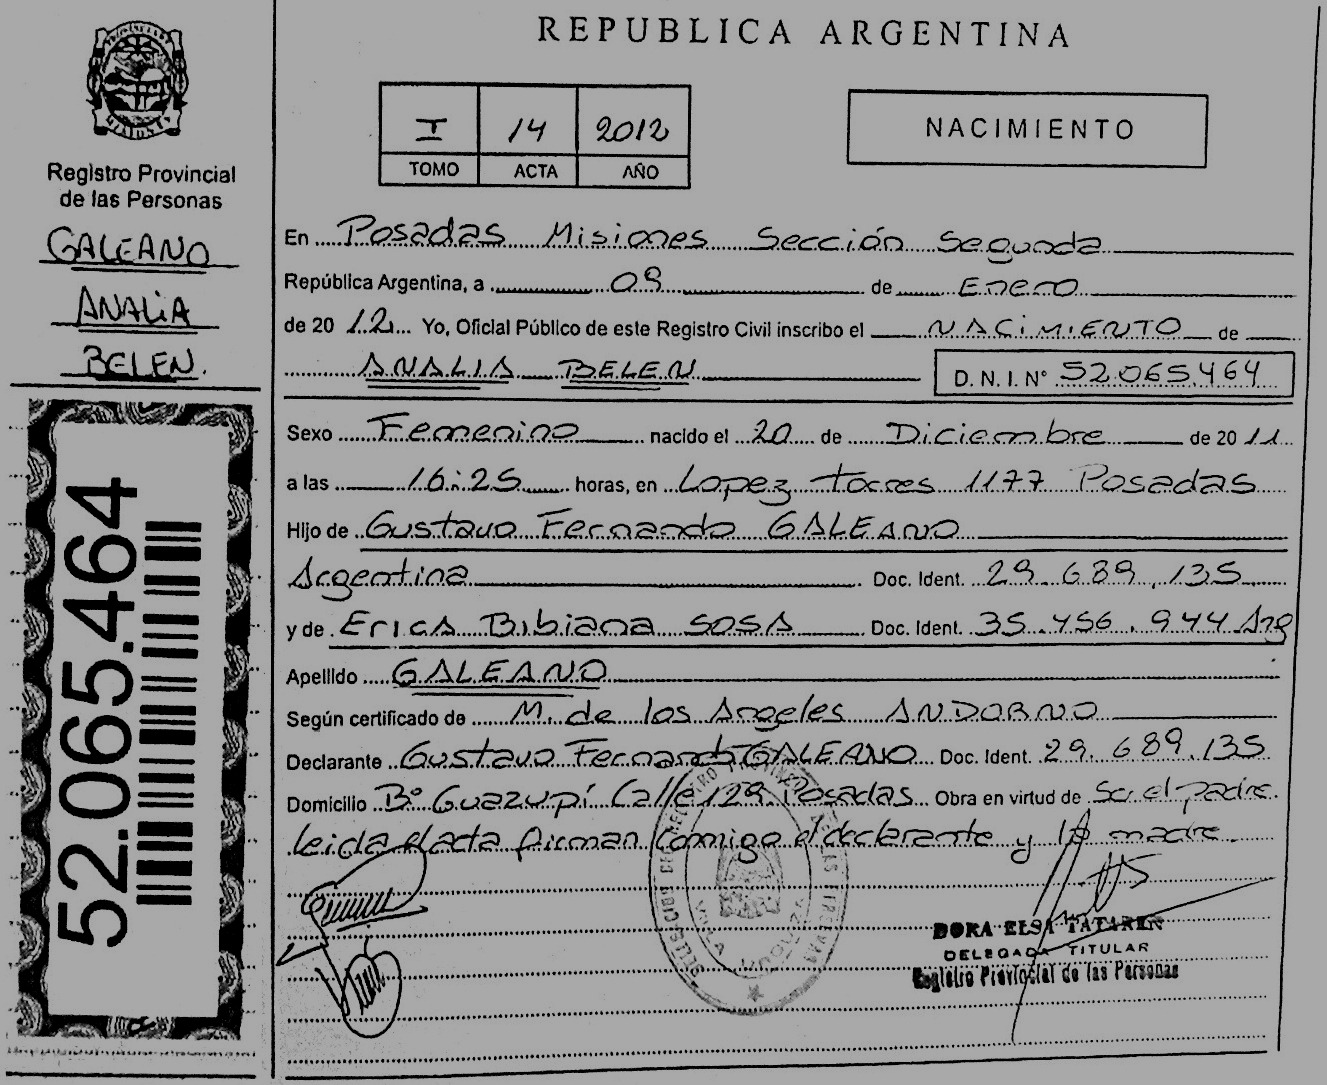 REPUBLICA ARGENTINA
PROVINCIA
MISIONES
Registro Provincial
de las Personas
GALEANO
ANALIA
BELEN.
52.065.464
I 14 2012
TOMO ACTA AÑO
NACIMIENTO
En Posadas Misiones Sección Segunda
República Argentina, a 09 de Enero
de 2012 Yo, Oficial Público de este Registro Civil inscribo el NACIMIENTO de
ANALIA BELEN D. N. I. N° 52.065.464
Sexo Femenino nacido el 20 de Diciembre de 2011
a las 16:25 horas, en Lopez torres 1177 Posadas
Hijo de Gustavo Fernando GALEANO
Argentina Doc. Ident. 29.689.135
y de Erica Bibiana SOSA Doc. Ident. 35.456.944 Arg
Apellido GALEANO
Según certificado de M. de los Angeles ANDORNO
Declarante Gustavo Fernando GALEANO Doc. Ident. 29.689.135
Domicilio B° Guazupí Calle 129 Posadas Obra en virtud de ser el padre.
leida el acta firman conmigo el declarante y la madre.
DORA ELSA
DELEGADA TITULAR
Registro Provincial de las Personas